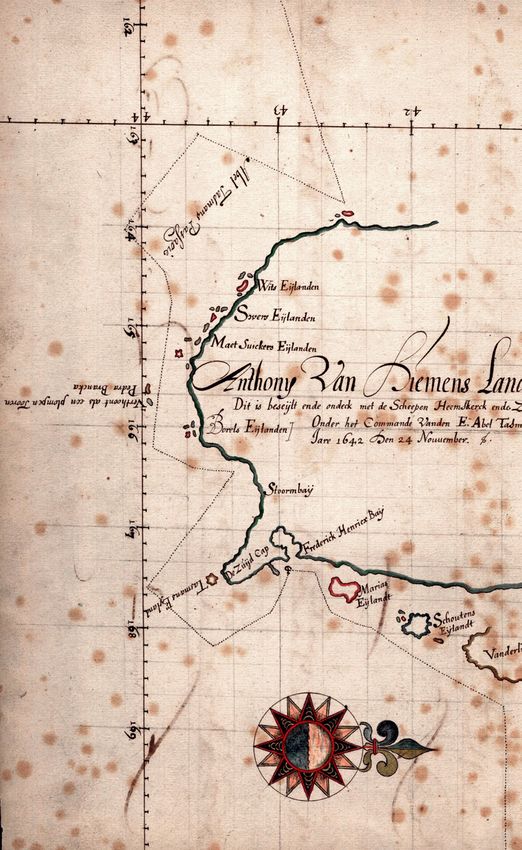 162
163
4
43
42
Abel Tasmans Passagie
164
Wits Eijlanden
Sweers Eijlanden
165
Maet Suickers Eijlanden
Anthony Van Diemens Land
Pedra Brancka
Verthoont als een plompen Tooren
Dit is beseijlt ende ondeck met de Scheepen Heemskerck ende Z
Onder het Commande Vanden E. Abel Tasm
Jare 1642 Den 24 Nouember.
166
Boreels Eijlanden
Stoormbaij
167
Frederick Henricx Baij
De Zuijd Cap
Tasmans Eyland
Marias
Eijlandt
168
Schoutens
Eijlandt
Vanderli
169